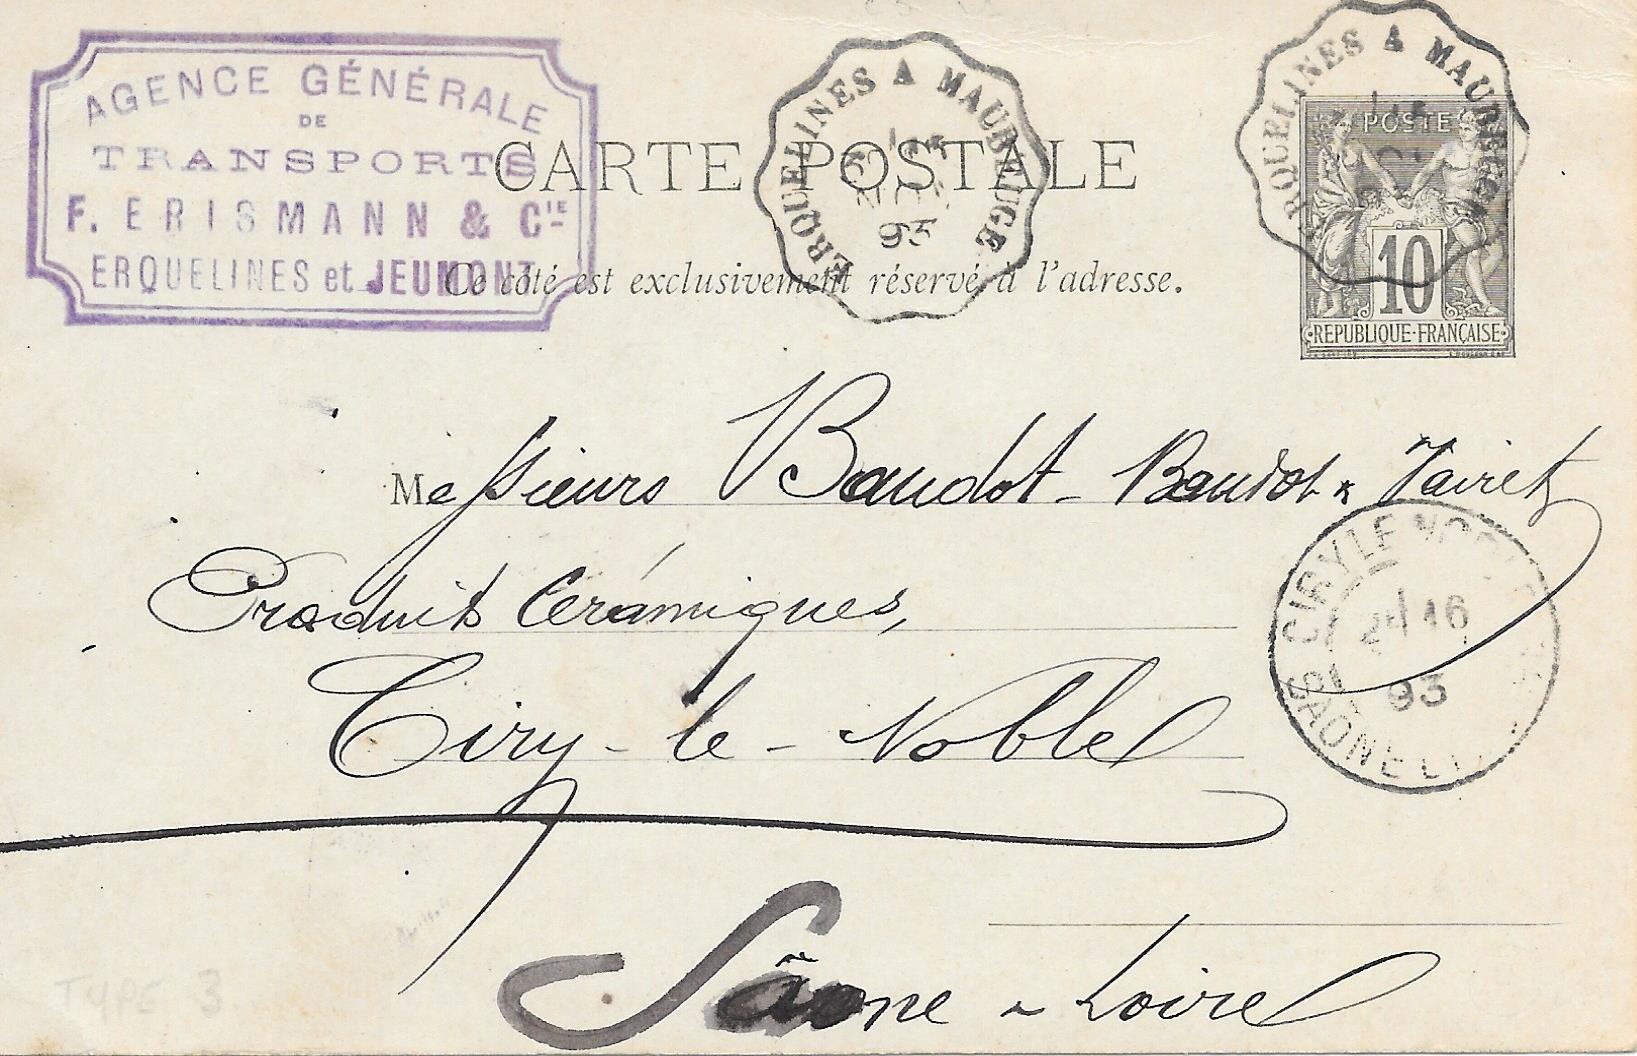 AGENCE GÉNÉRALE
DE
TRANSPORTS
F. ERISMANN & CIE
ERQUELINES et JEUMONT
CARTE POSTALE
Ce côté est exclusivement réservé à l'adresse.
ERQUELINES A MAUBEUGE
NOV
93
ERQUELINES A MAUBEUGE
POSTE
10
REPUBLIQUE-FRANÇAISE
Messieurs Baudot-Baudot & Vairet
Produits Cerámiques,
Ciry-le-Noble
Sâone-Loire
CIRY LE NOBLE
93
SAONE
TYPE 3